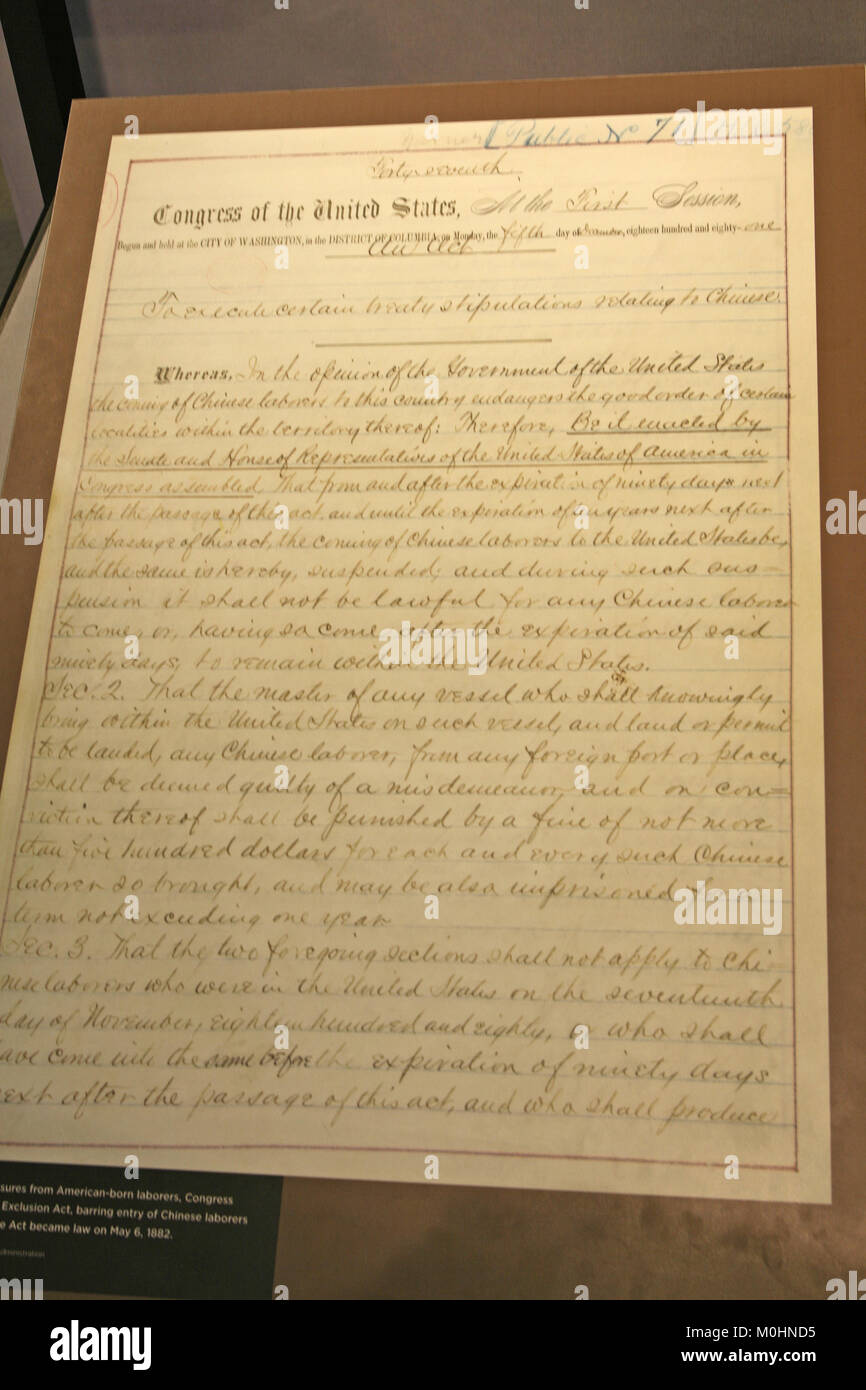 [Public No 71
Forty seventh
Congress of the United States, At the First Session,
Begun and held at the CITY OF WASHINGTON, in the DISTRICT OF COLUMBIA, on Monday, the fifth day of December, eighteen hundred and eighty-one
An Act
To execute certain treaty stipulations relating to Chinese.
Whereas, In the opinion of the Government of the United States
the coming of Chinese laborers to this country endangers the good order of certain
localities within the territory thereof: Therefore, Be it enacted by
the Senate and House of Representatives of the United States of America in
Congress assembled, That from and after the expiration of ninety days next
after the passage of this act, and until the expiration of ten years next after
the passage of this act, the coming of Chinese laborers to the United States be,
and the same is hereby, suspended; and during such sus=
pension it shall not be lawful for any Chinese laborer
to come, or, having so come after the expiration of said
ninety days, to remain within the United States.
Sec. 2. That the master of any vessel who shall knowingly
bring within the United States on such vessel, and land or permit
to be landed, any Chinese laborer, from any foreign port or place,
shall be deemed guilty of a misdemeanor, and on con=
viction thereof shall be punished by a fine of not more
than five hundred dollars for each and every such Chinese
laborer so brought, and may be also imprisoned for a
term not exceeding one year.
Sec. 3. That the two foregoing sections shall not apply to Chi-
nese laborers who were in the United States on the seventeenth
day of November, eighteen hundred and eighty, or who shall
have come into the same before the expiration of ninety days
next after the passage of this act, and who shall produce
sures from American-born laborers, Congress
Exclusion Act, barring entry of Chinese laborers
e Act became law on May 6, 1882.
dministration
alamy
alamy
Image ID: M0HND5
www.alamy.com